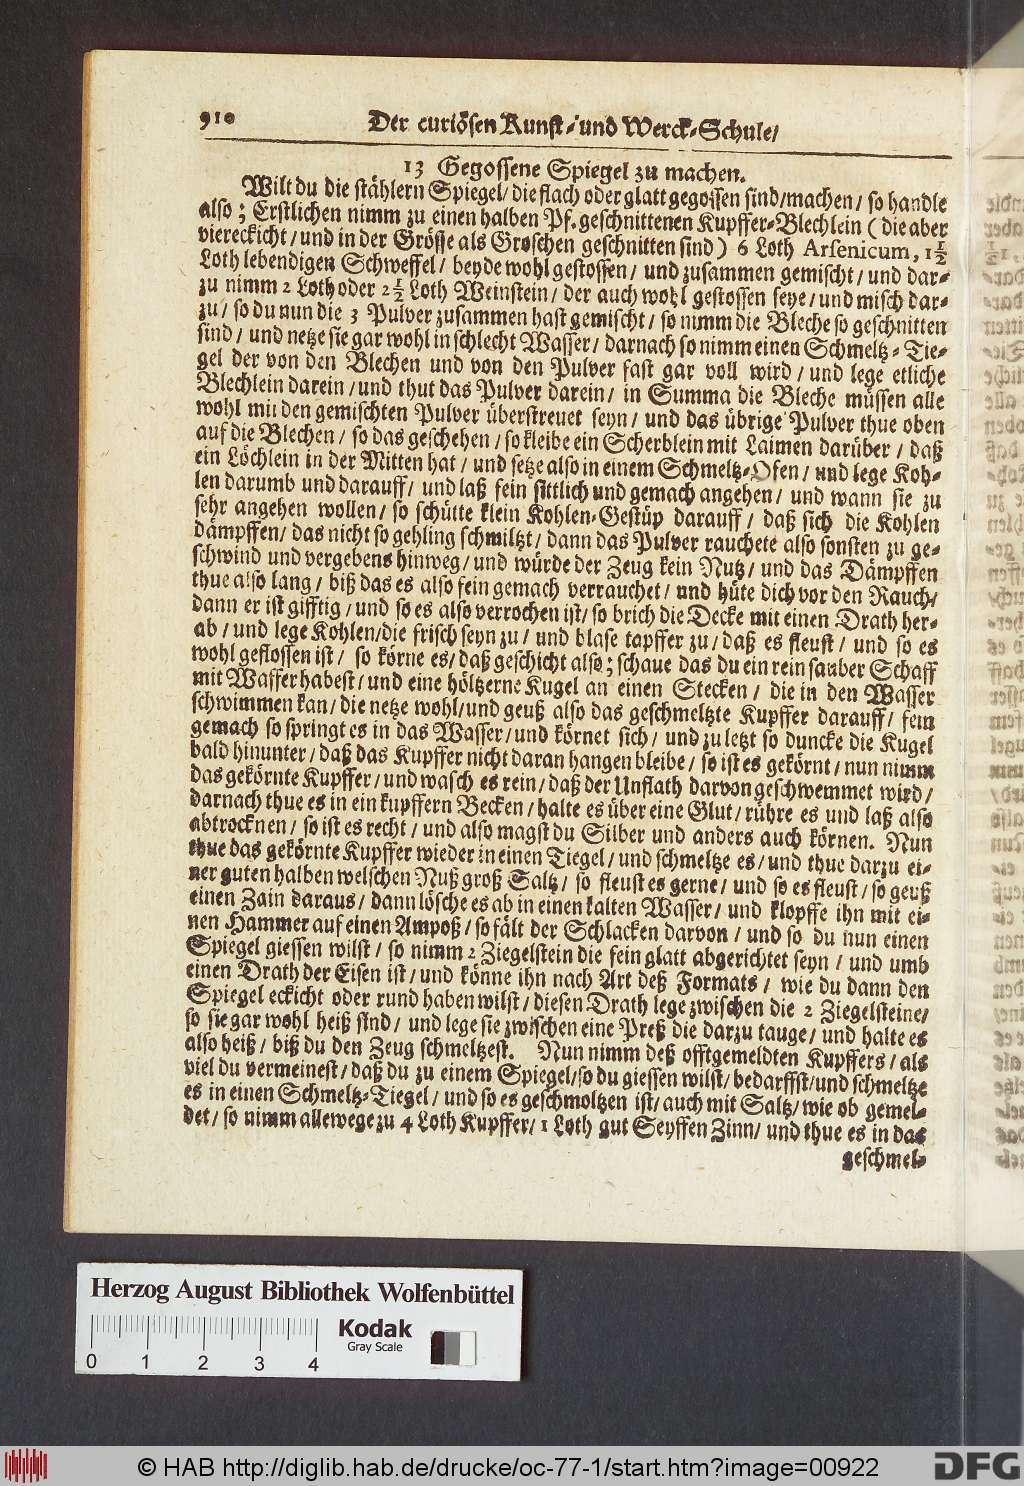 910 Der curiösen Kunst-und Werck-Schule/
13 Gegossene Spiegel zu machen.
Wilt du die stählern Spiegel/ die flach oder glatt gegossen sind/machen/ so handle
also; Erstlichen nimm zu einen halben Pf. geschnittenen Kupffer-Blechlein (die aber
viereckicht/und in der Grösse als Groschen geschnitten sind) 6 Loth Arsenicum, 1½
Loth lebendigen Schweffel/ beyde wohl gestossen/ und zusammen gemischt/ und dar-
zu nimm 2 Loth oder 2½ Loth Weinstein/ der auch wohl gestossen seye/ und misch dar-
zu/ so du nun die 3 Pulver zusammen hast gemischt/ so nimm die Bleche so geschnitten
sind/ und netze sie gar wohl in schlecht Wasser/ darnach so nimm einen Schmeltz-Tie-
gel der von den Blechen und von den Pulver fast gar voll wird/ und lege etliche
Blechlein darein/und thut das Pulver darein/ in Summa die Bleche müssen alle
wohl mit den gemischten Pulver überstreuet seyn/ und das übrige Pulver thue oben
auf die Blechen/ so das geschehen/ so kleibe ein Scherblein mit Laimen darüber/ daß
ein Löchlein in der Mitten hat/ und setze also in einem Schmeltz-Ofen/ und lege Koh-
len darumb und darauff/ und laß fein sittlich und gemach angehen/ und wann sie zu
sehr angehen wollen/ so schütte klein Kohlen-Gestüp darauff/ daß sich die Kohlen
dämpffen/ das nicht so gehling schmiltzt/ dann das Pulver rauchete also sonsten zu ge-
schwind und vergebens hinweg/und würde der Zeug kein Nutz/ und das Dämpffen
thue also lang/ biß das es also fein gemach verrauchet/ und hüte dich vor den Rauch/
dann er ist gifftig/ und so es also verrochen ist/ so brich die Decke mit einen Drath her-
ab/ und lege Kohlen/die frisch seyn zu/ und blase tapffer zu/ daß es fleust/ und so es
wohl geflossen ist/ so körne es/ daß geschicht also; schaue das du ein rein sauber Schaff
mit Wasser habest/und eine höltzerne Kugel an einen Stecken/ die in den Wasser
schwimmen kan/ die netze wohl/und geuß also das geschmeltzte Kupffer darauff/ fein
gemach so springt es in das Wasser/und körnet sich/ und zu letzt so duncke die Kugel
bald hinunter/ daß das Kupffer nicht daran hangen bleibe/ so ist es gekörnt/ nun nimm
das gekörnte Kupffer/ und wasch es rein/ daß der Unflath darvon geschwemmet wird/
darnach thue es in ein kupffern Becken/ halte es über eine Glut/ rühre es und laß also
abtrocknen/ so ist es recht/ und also magst du Silber und anders auch körnen. Nun
thue das gekörnte Kupffer wieder in einen Tiegel/ und schmeltze es/ und thue darzu ei-
ner guten halben welschen Nuß groß Saltz/ so fleust es gerne/ und so es fleust/ so geuß
einen Zain daraus/ dann lösche es ab in einen kalten Wasser/ und klopffe ihn mit ei-
nen Hammer auf einen Ampoß/ so fält der Schlacken darvon/ und so du nun einen
Spiegel giessen wilst/ so nimm 2 Ziegelstein die fein glatt abgerichtet seyn/ und umb
einen Drath der Eisen ist/ und könne ihn nach Art deß Formats/ wie du dann den
Spiegel eckicht oder rund haben wilst/ diesen Drath lege zwischen die 2 Ziegelsteine/
so sie gar wohl heiß sind/ und lege sie zwischen eine Preß die darzu tauge/ und halte es
also heiß/ biß du den Zeug schmeltzest. Nun nimm deß offtgemeldten Kupffers/ als
viel du vermeinest/ daß du zu einem Spiegel/so du giessen wilst/ bedarffst/und schmeltze
es in einen Schmeltz-Tiegel/ und so es geschmoltzen ist/ auch mit Saltz/ wie ob gemel-
det/ so nimm allewege zu 4 Loth Kupffer/ 1 Loth gut Seyffen Zinn/ und thue es in das
geschmel-
Herzog August Bibliothek Wolfenbüttel
Kodak
Gray Scale
0 1 2 3 4
© HAB http://diglib.hab.de/drucke/oc-77-1/start.htm?image=00922
DFG